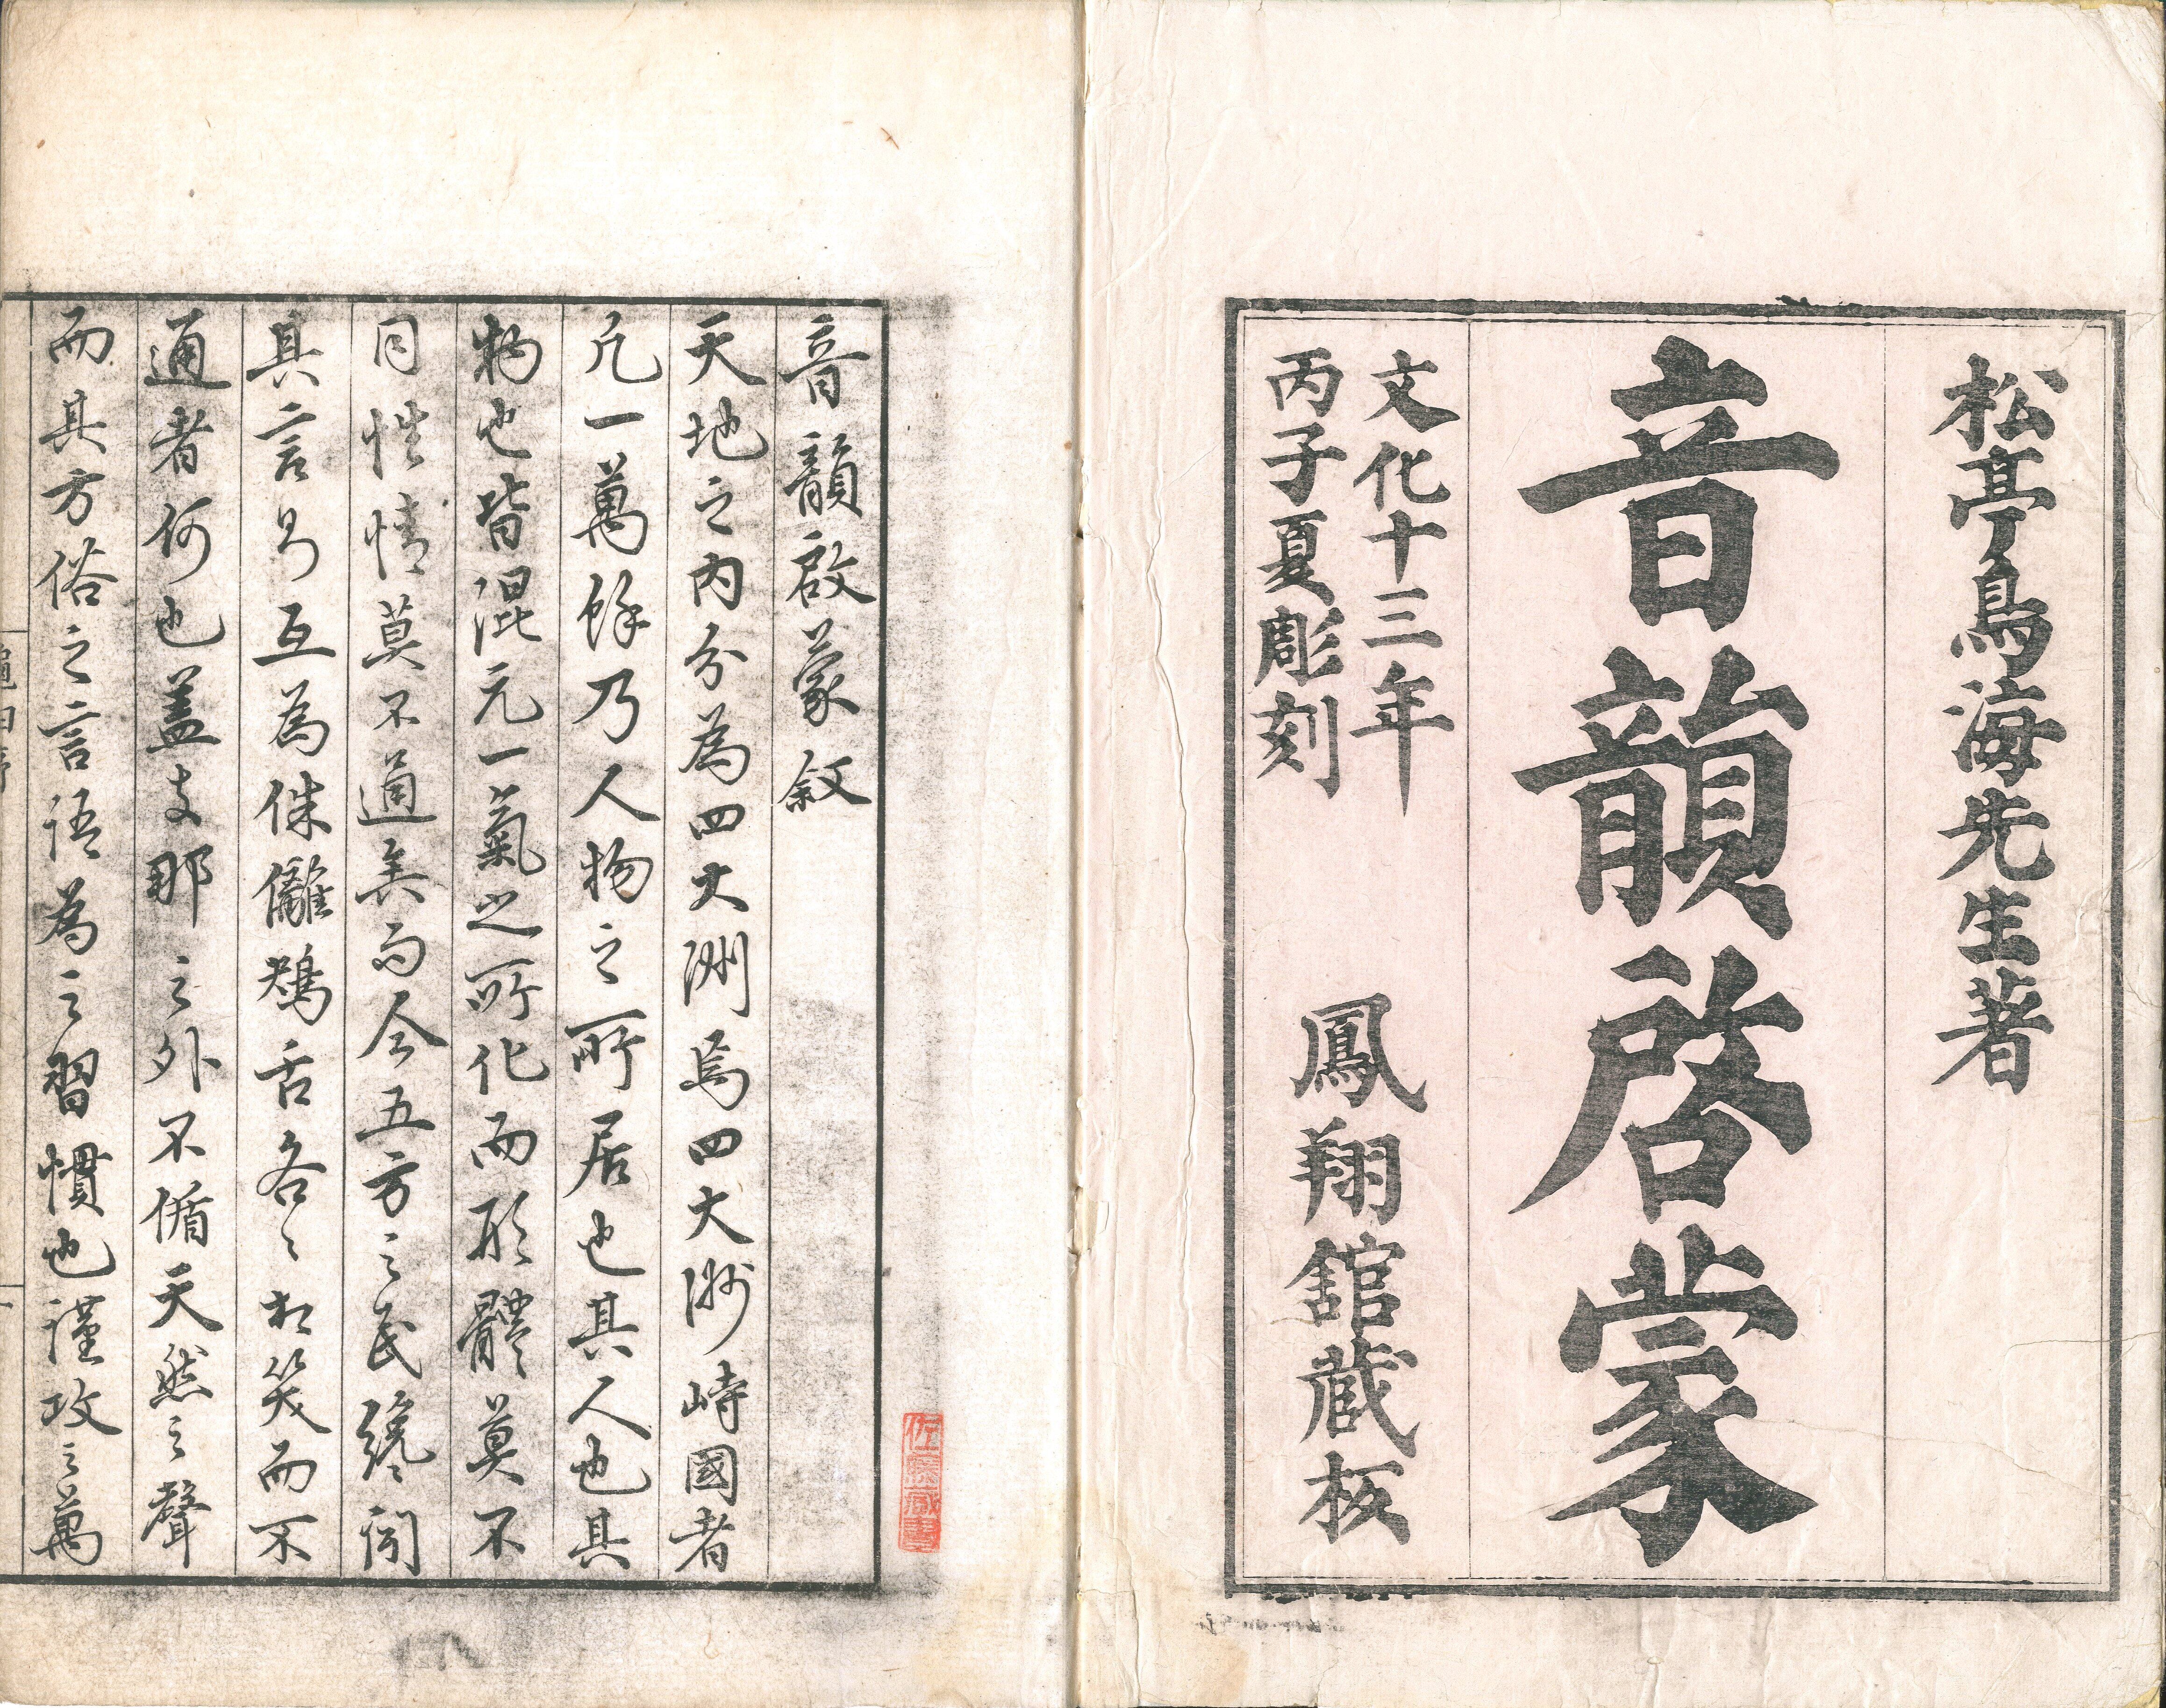 松亭鳥海先生著
音韻啓蒙
文化十三年
丙子夏彫刻
鳳翔館蔵板
音韻啟蒙叙
天地之内分為四大洲焉四大洲峙國者
凡一萬餘乃人物之所居也其人也其
物也皆混元一氣之所化而形體莫不
同性情莫不通矣而今五方之民纔聞
其言乃互為侏儷鴂舌各〻相笑而不
通者何也蓋支那之外不循天然之聲
而其方俗之言語為之習慣也謹攷之萬
佐藤蔵書